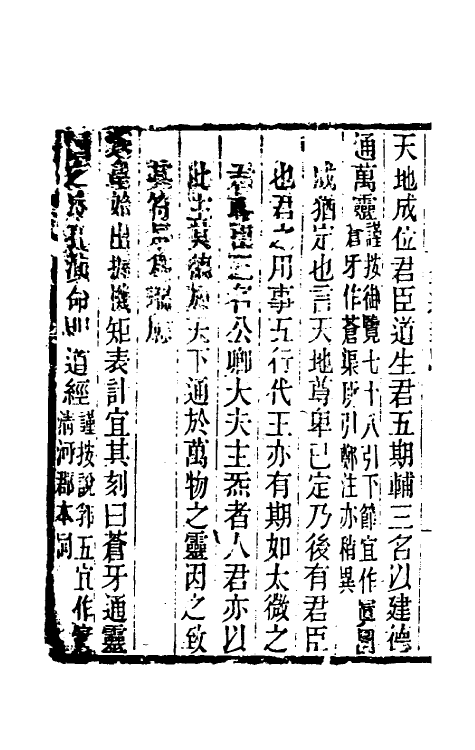 天地成位君臣道生君五期輔三名以建德
通萬靈謹按御覽七十八引下節宜作
蒼牙作蒼渠所引鄭注亦稍異
成猶定也言天地尊卑已定乃後有君臣
也君之用事五行代王亦有期如太微之
君 之名公卿大夫主炁者人君亦以
此立其德於天下通於萬物之靈因之致
其符 為瑞應
皇始出握機矩表計宜其刻曰蒼牙通靈
之 孔演命明道經謹按說郛五宜作
清河郡本同